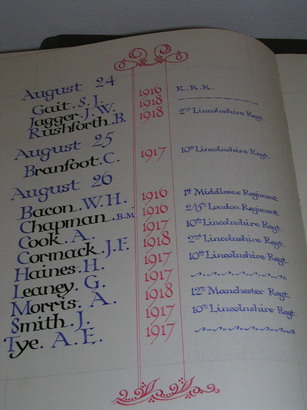 August 24
Gait. S. J. 1916 K.R.R.
Jagger. J. W. 1918
Rushforth. B. 1918 2nd Lincolnshire Regt.
August 25
Branfoot. C. 1917 10th Lincolnshire Regt.
August 26
Bacon. W. H. 1916 1st Middlesex Regiment
Chapman. B.M 1916 London Regiment
Cook. A. 1917 10th Lincolnshire Regt.
Cormack. J. F. 1918 2nd Lincolnshire Regt.
Haines. H. 1917 10th Lincolnshire Regt.
Leaney. G. 1917
Morris. A. 1918 12th Manchester Regt.
Smith. J. 1917 10th Lincolnshire Regt.
Tye. A. E. 1917